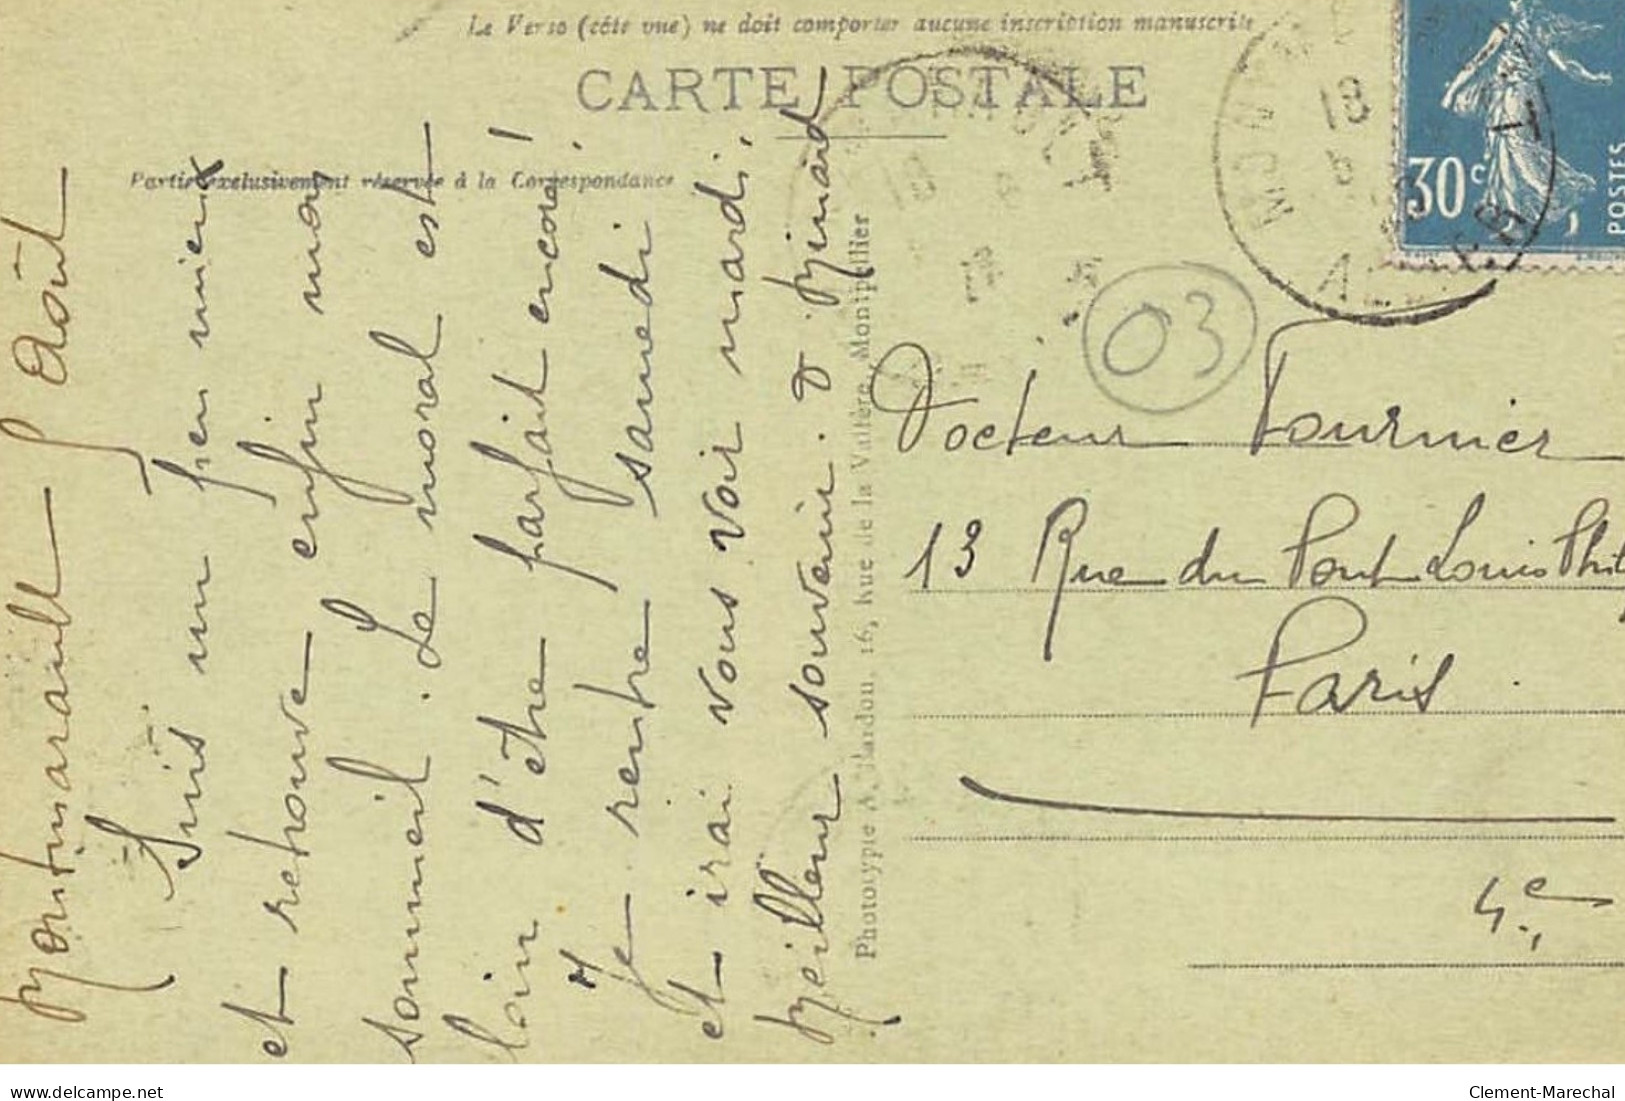 Le Verso (côté vue) ne doit comporter aucune inscription manuscrite
CARTE POSTALE
Partie exclusivement réservée à la Correspondance
Montmarault Août
Suis un peu mieux
et retrouve enfin mon
sommeil. Le moral est
loin d'être parfait encore!
Je rentre samedi
et irai vous voir mardi.
Meilleur souvenir.
Phototypie A. Bardou, 16, Rue de la Vallère, Montpellier
30c
POSTES
18
03
Docteur Fournier
13 Rue du Pont Louis Phil
Paris
4e
delcampe.net
Clement-Marechal